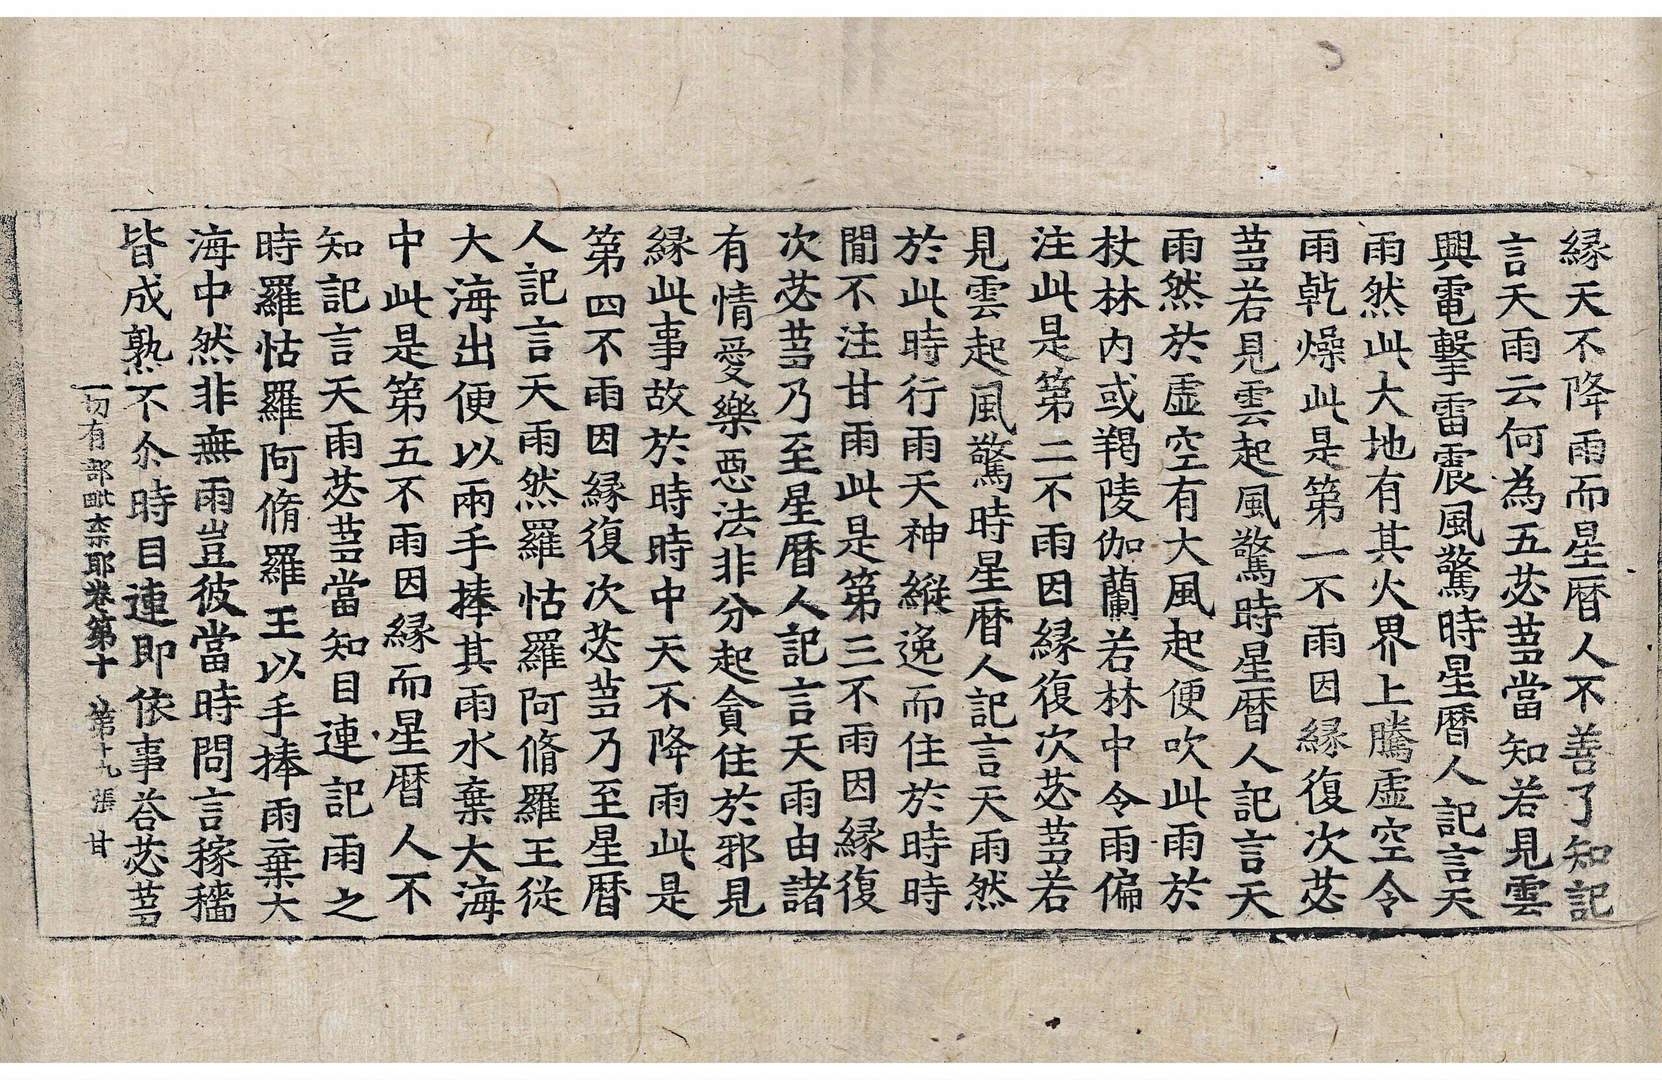 縁天不降雨而星暦人不善了知記
言天雨云何為五苾蒭當知若見雲
興電擊雷震風驚時星暦人記言天
雨然此大地有其火界上騰虛空令
雨乾燥此是第一不雨因縁復次苾
蒭若見雲起風驚時星暦人記言天
雨然於虛空有大風起便吹此雨於
杖林內或羯陵伽蘭若林中令雨偏
注此是第二不雨因縁復次苾蒭若
見雲起風驚時星暦人記言天雨然
於此時行雨天神縱逸而住於時時
閒不注甘雨此是第三不雨因縁復
次苾蒭乃至星暦人記言天雨由諸
有情愛樂惡法非分起貪住於邪見
縁此事故於時時中天不降雨此是
第四不雨因縁復次苾蒭乃至星暦
人記言天雨然羅怙羅阿脩羅王從
大海出便以兩手捧其雨水棄大海
中此是第五不雨因縁而星暦人不
知記言天雨苾蒭當知目連記雨之
時羅怙羅阿脩羅王以手捧雨棄大
海中然非無雨豈彼當時問言稼穡
皆成熟不尒時目連即依事荅苾蒭
一切有部毗奈耶卷第十 第十九張 甘